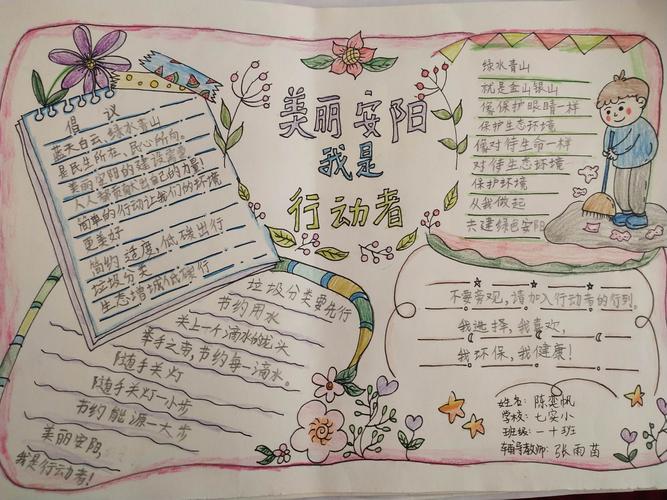 美丽安阳
我是
行动者
倡议
蓝天白云、绿水青山
是民生所在、民心所向。
美丽安阳的建设需要
人人都贡献出自己的力量!
简单的行动让我们的环境
更美好
简约适度,低碳出行
垃圾分类
生态增城低碳行
垃圾分类要先行
节约用水
关上一个滴水的龙头
举手之劳,节约每一滴水。
随手关灯
随手关灯一小步
节约能源一大步
美丽安阳
我是行动者!
绿水青山
就是金山银山
像保护眼睛一样
保护生态环境
像对待生命一样
对待生态环境
保护环境
从我做起
共建绿色安阳
不要旁观,请加入行动者的行列。
我选择,我喜欢,
我环保,我健康!
姓名:陈奕帆
学校:七实小
班级:一十班
辅导教师:张雨苗